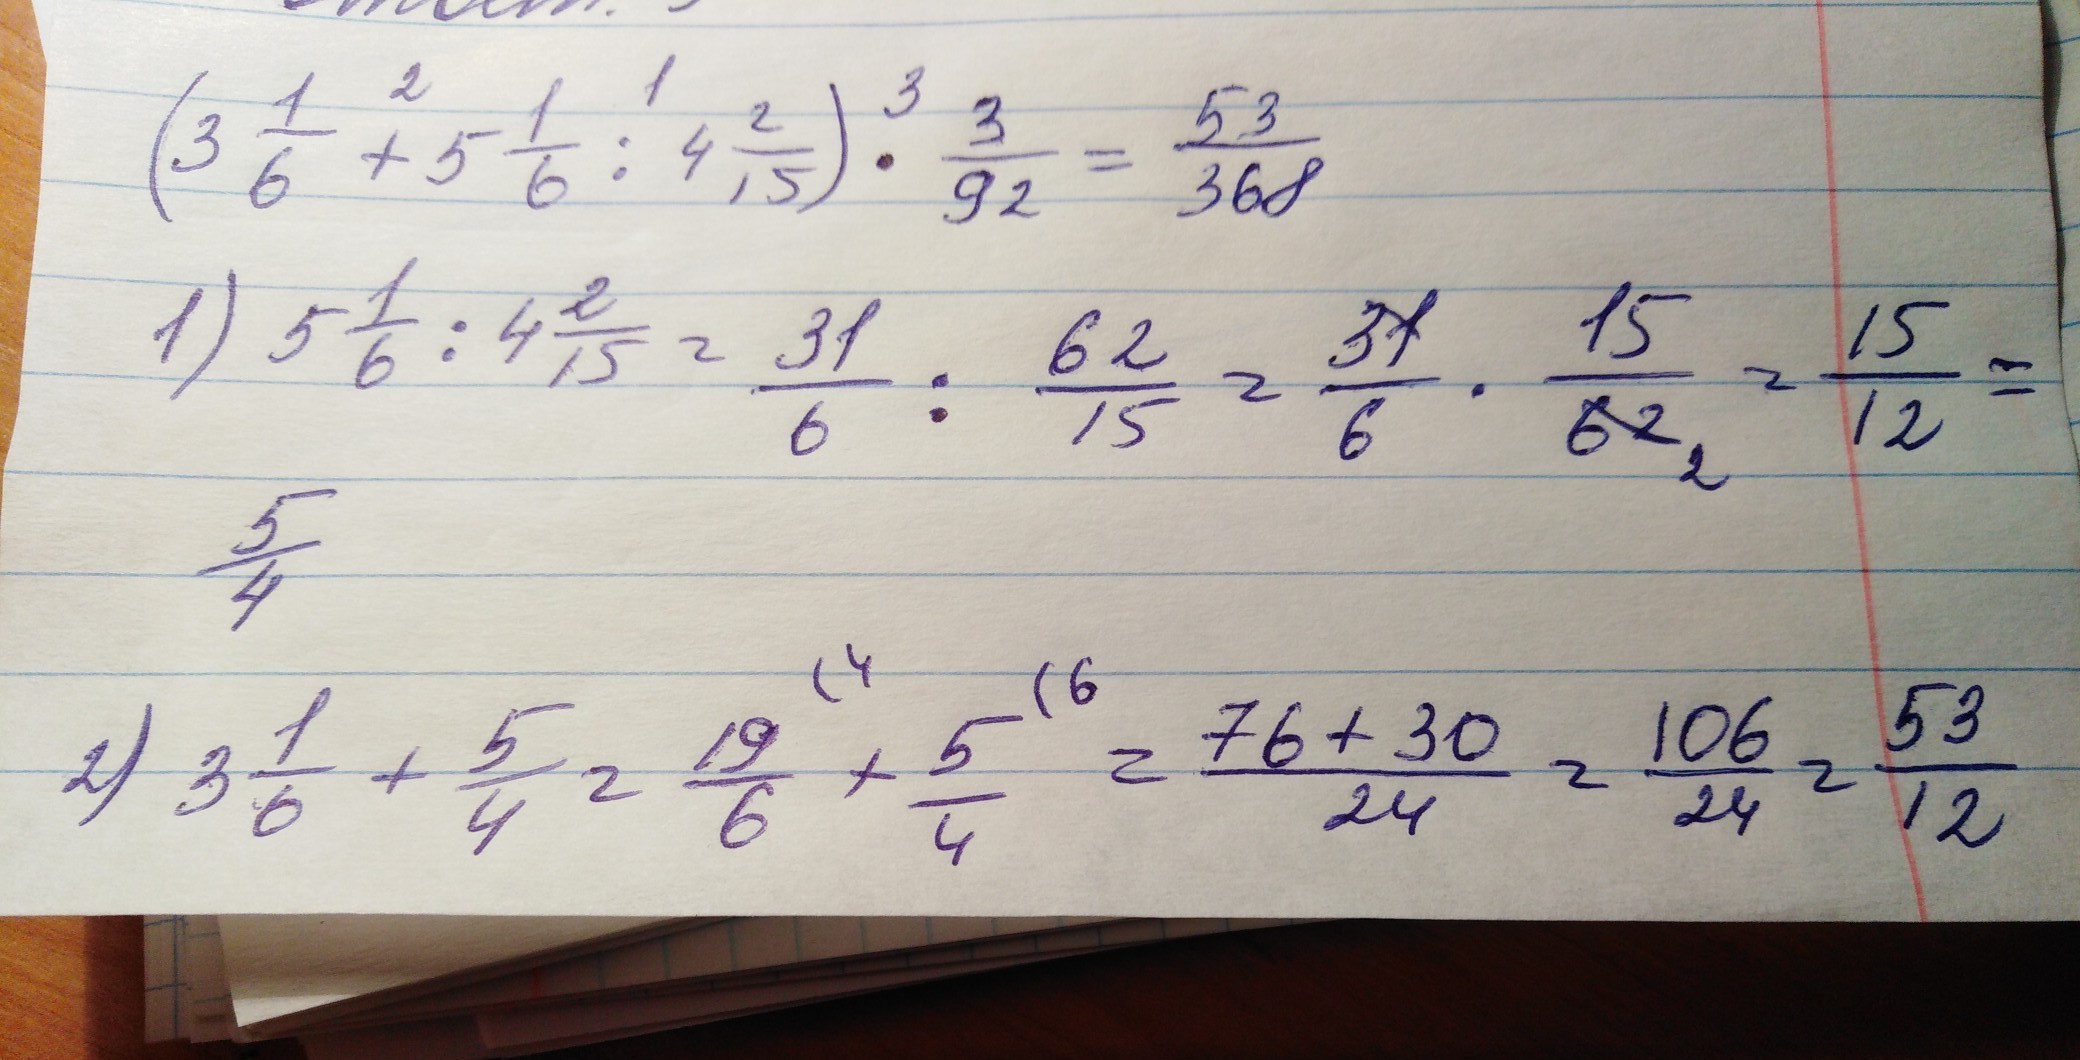 (3 1/6 +² 5 1/6 :¹ 4 2/15) ·³ 3/92 = 53/368
1) 5 1/6 : 4 2/15 = 31/6 : 62/15 = 31/6 · 15/62 2 = 15/12 =
5/4
2) 3 1/6 + 5/4 = 19/6 (4 + 5/4 (6 = 76+30/24 = 106/24 = 53/12